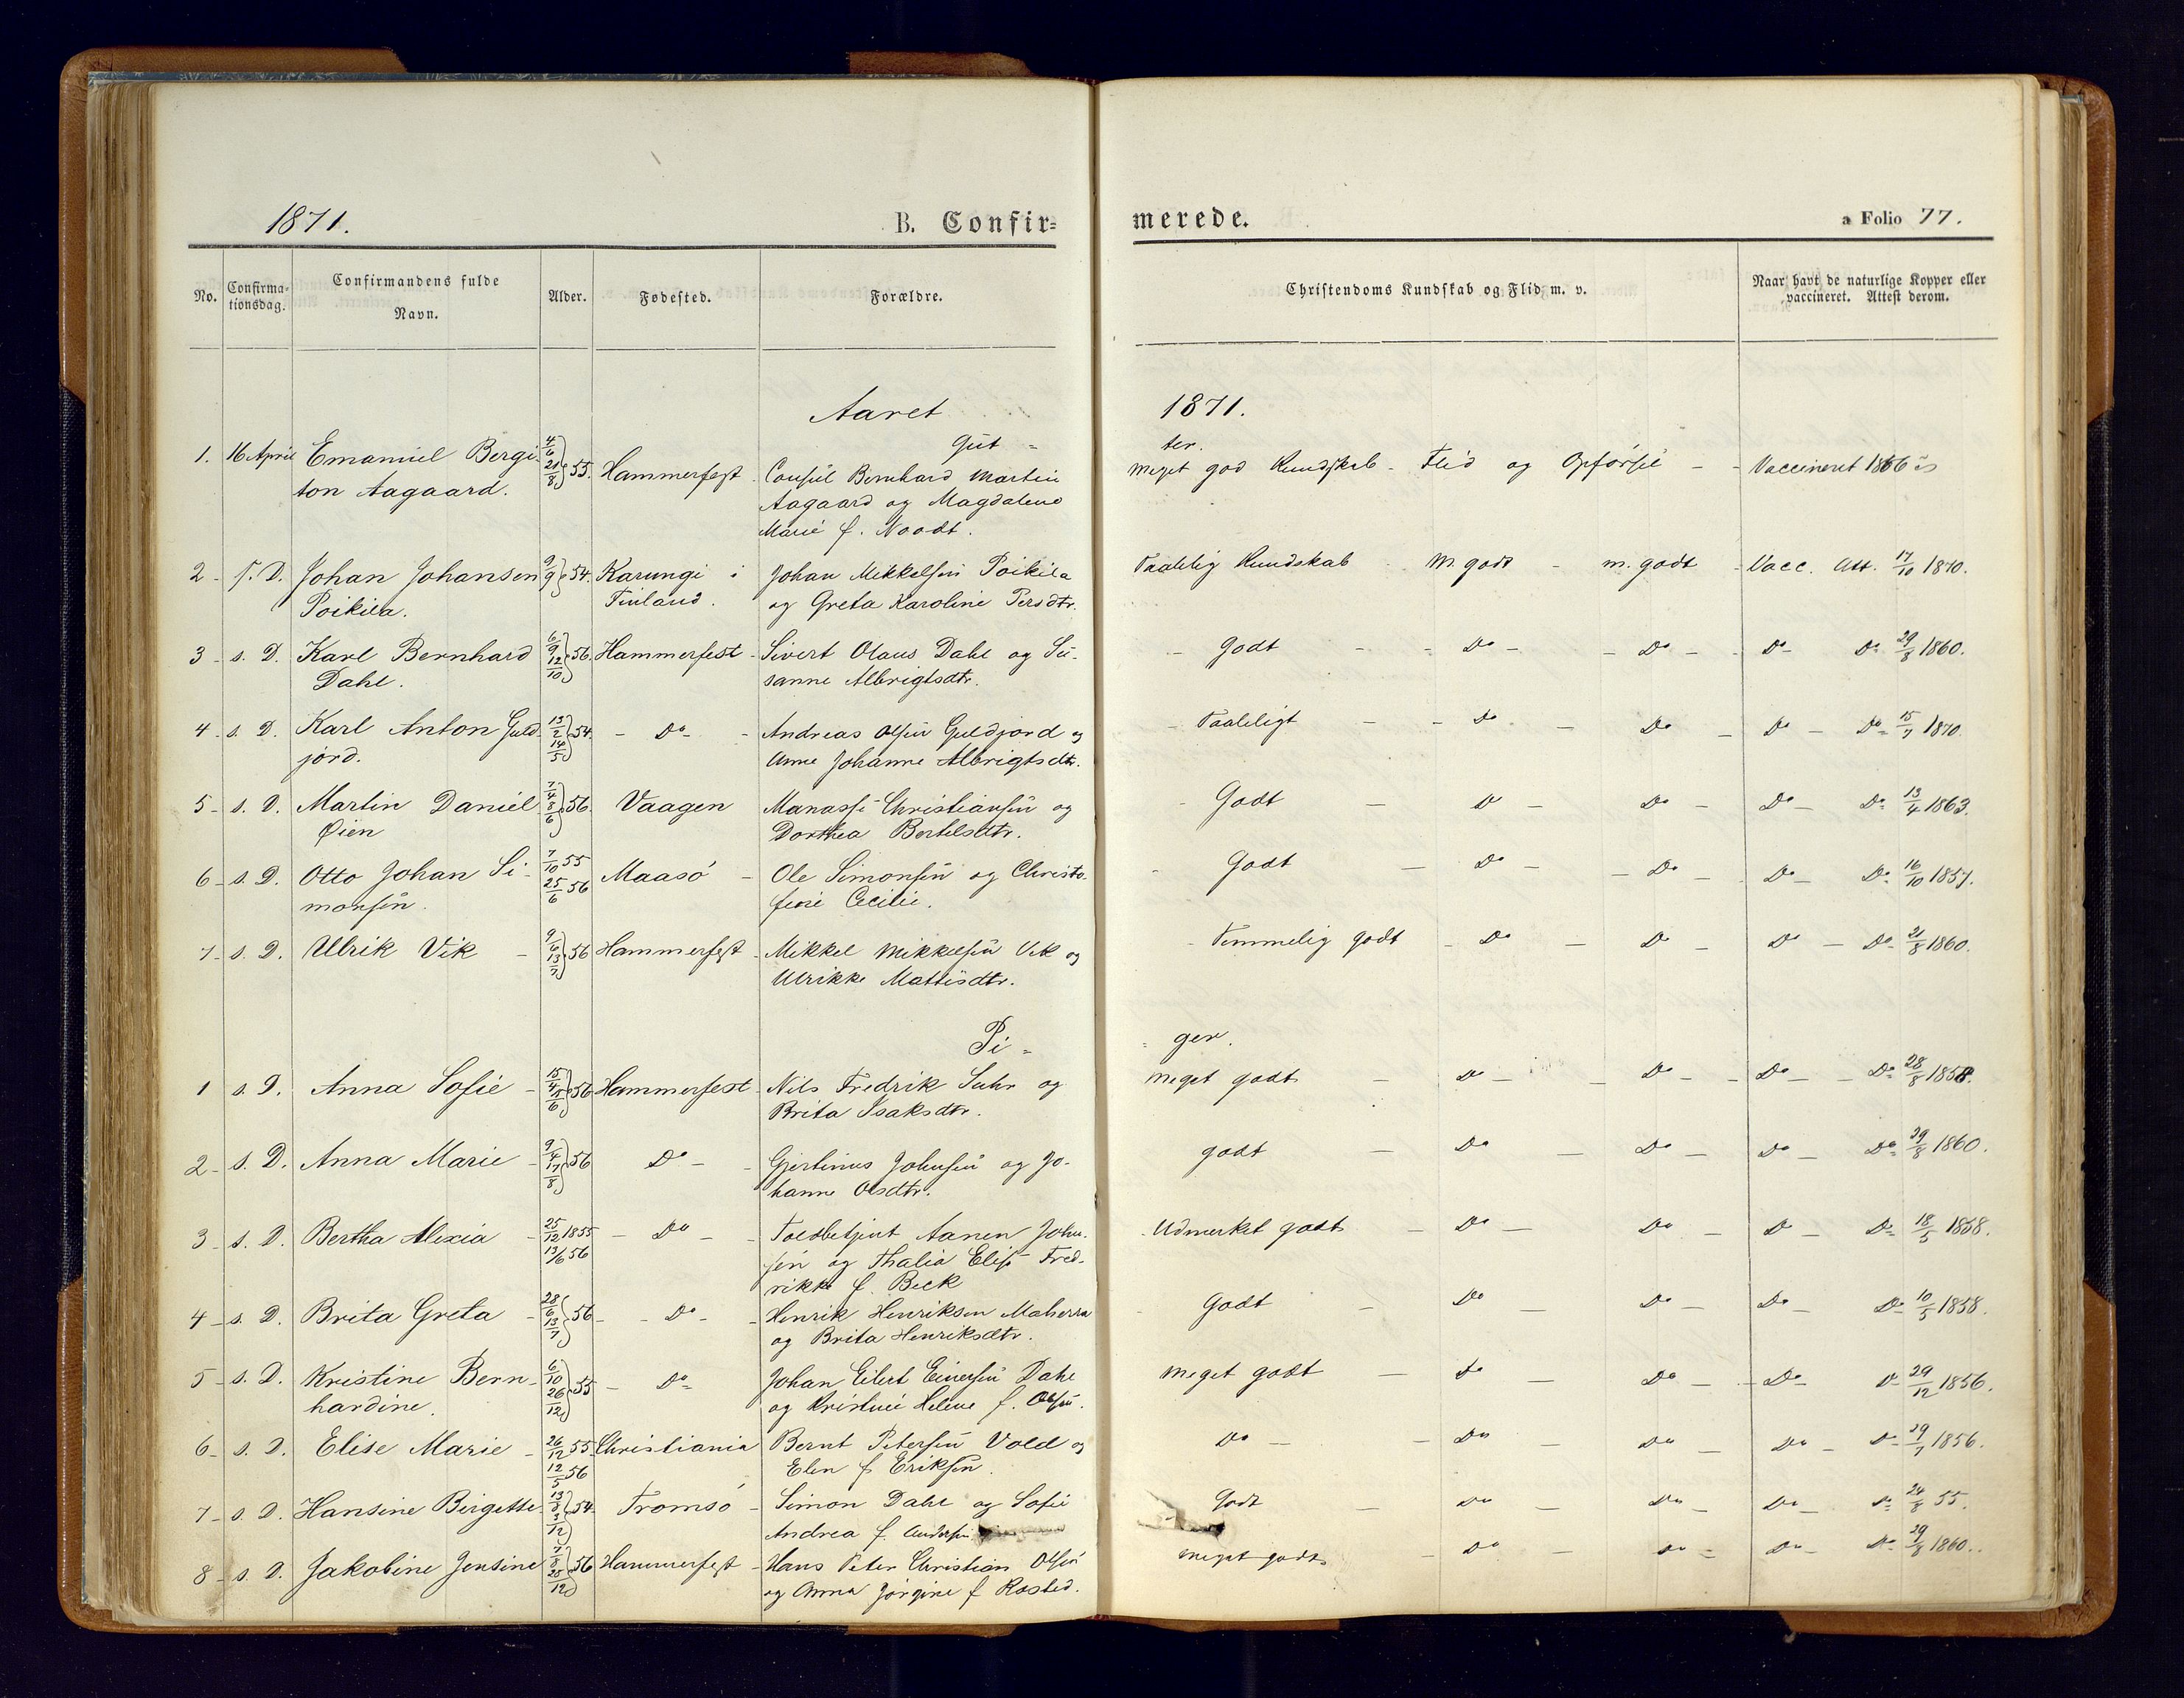 1871.
B. Confir=
merede.
a Folio 77.
No.
Confirma-
tionsdag.
Confirmandens fulde
Navn.
Alder.
Fødested.
Forældre.
Christendoms Kundskab og Flid m. v.
Naar havt de naturlige Kopper eller
vaccineret. Attest derom.
Aaret 1871.
Gut = ter.
1. 16 April Emanuel Bergi- 4/6 21/8 55. Hammerfest - Consul Bernhard Martin Meget god Kundskab - Flid og Opførsel - - Vaccineret 1856
ton Aagaard. Aagaard og Magdalene
Marie f. Noodt.
2 - s. D. Johan Johansen 9/9 54. Karungi i Johan Mikkelsen Poikila Taalelig Kundskab - M. godt - m. godt - Vacc. Att. 17/10 1870.
Poikila. Finland. og Greta Karoline Persdtr.
3 - s. D. Karl Bernhard 6/9 12/10 56. Hammerfest - Sivert Olaus Dahl og Su- - Godt - - Do - - Do - - Do - Do 29/8 1860.
Dahl. sanne Albrigtsdtr.
4 - s. D. Karl Anton Guld- 13/2 14/5 54. - Do - - Andreas Olsen Guldjord og - Taaleligt - - Do - Do - Do - Do 15/7 1870.
jord. Anne Johanne Albrigtsdtr.
5 - s. D. Martin Daniel 7/4 8/6 56. Vaagen Manasse Christiansen og - Godt - Do - Do - Do - Do 13/4 1863.
Øien Dorthea Bertelsdtr.
6 - s. D. Otto Johan Si- 7/10 55 Maasö - Ole Simonsen og Christo- - Godt - Do - - Do - Do - Do 16/10 1857.
monsen. 25/6 56 fine Cecilie.
7 - s. D. Ulrik Vik - 9/6 13/7 56 Hammerfest - Mikkel Mikkelsen Vik og - Temmelig godt - Do - Do - Do - Do 21/8 1860.
Ulrikke Mattisdtr.
Pi = = ger.
1 s. D. Anna Sofie - 15/4 56 Hammerfest - Nils Fredrik Suhr og Meget godt - Do - - Do - - Do - - Do 28/8 1858.
Brita Isaksdtr.
2 - s. D. Anna Marie - 9/4 17/8 56 Do - - Gjertinus Johnsen og Jo- godt - Do - Do - Do - Do 29/8 1860.
hanne Olsdtr.
3 - s. D. Bertha Alexia - 25/12 1855 - Do - - Toldbetjent Aanen John- - Udmerket godt - Do - Do - Do - Do 18/5 1858.
13/6 56 sen og Thalia Elise Fred-
rikke f. Beck
4 - s. D. Brita Greta - 28/6 13/7 56 - - Do - - Henrik Henriksen Maherra - Godt - Do - Do - Do - Do 10/5 1858.
og Brita Henriksdtr.
5 - s. D. Kristine Bern- 6/10 26/12 55 - Do Johan Eilert Einersen Dahl Meget godt - Do - Do - - Do - Do 29/12 1856.
hardine. og Kristine Helene f. Olsen.
6 - s. D. Elise Marie - 26/12 55 Christiania Bernt Petersen Vold og Do - - Do - Do - Do - Do 29/7 1856.
12/5 56 Elen f. Eriksen.
7 - s. D. Hansine Birgette 13/8 3/12 54. Tromsö - Simon Dahl og Sofie Godt - Do - Do - Do - Do 24/8 55.
Andrea f. Andersen
8 - s. D. Jakobine Jensine 7/8 25/12 56 Hammerfest - Hans Peter Christian Olsen Meget godt - Do - Do - Do - Do 29/8 1860.
og Anna Jörgine f. Rosted.